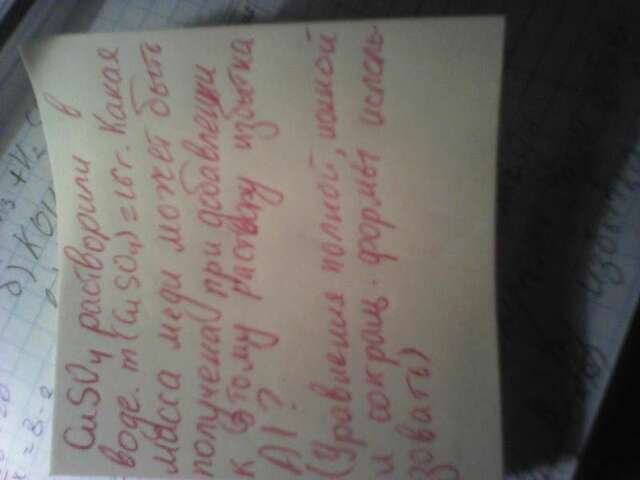 CuSO4 растворили в
воде. m(CuSO4)=16г. Какая
масса меди может быть
получена при добавлении
к этому раствору избытка
Al?
(Уравнения полной, ионной
и сокращ. формы исполь-
зовать)
б) KOH